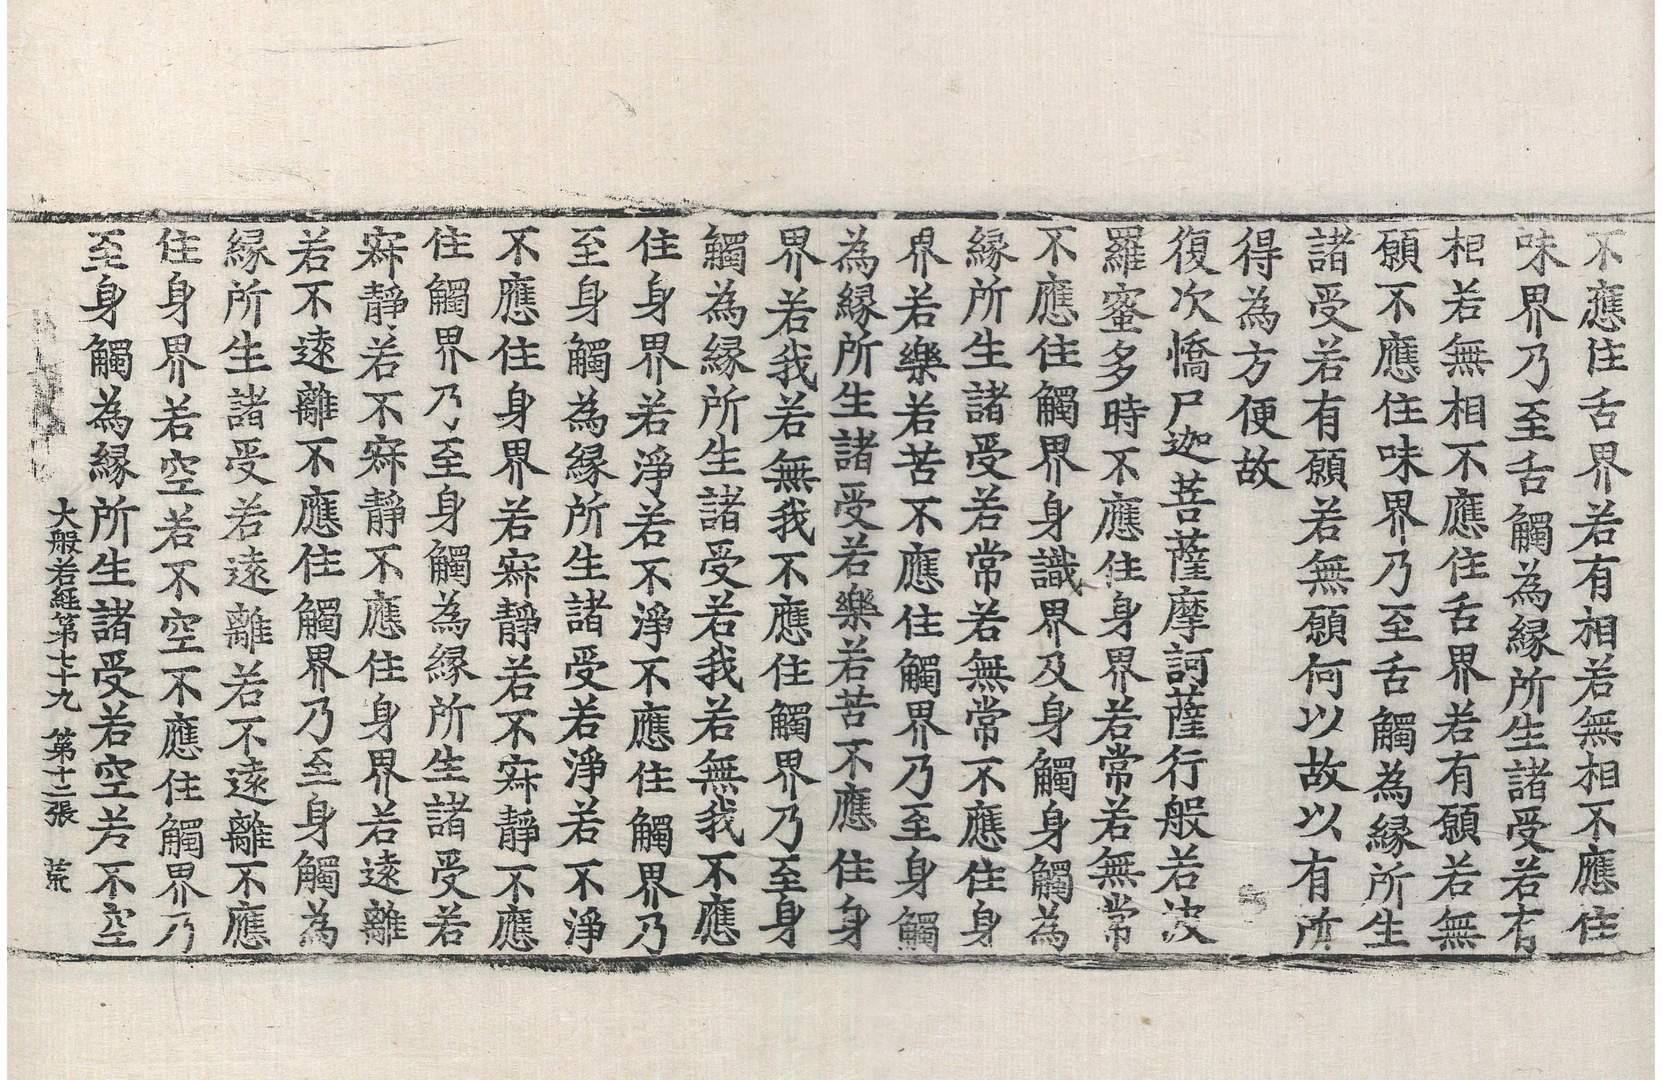 不應住舌界若有相若無相不應住
味界乃至舌觸為縁所生諸受若有
相若無相不應住舌界若有願若無
願不應住味界乃至舌觸為縁所生
諸受若有願若無願何以故以有所
得為方便故
復次憍尸迦菩薩摩訶薩行般若波
羅蜜多時不應住身界若常若無常
不應住觸界身識界及身觸身觸為
縁所生諸受若常若無常不應住身
界若樂若苦不應住觸界乃至身觸
為縁所生諸受若樂若苦不應住身
界若我若無我不應住觸界乃至身
觸為縁所生諸受若我若無我不應
住身界若淨若不淨不應住觸界乃
至身觸為縁所生諸受若淨若不淨
不應住身界若寂靜若不寂靜不應
住觸界乃至身觸為縁所生諸受若
寂靜若不寂靜不應住身界若遠離
若不遠離不應住觸界乃至身觸為
縁所生諸受若遠離若不遠離不應
住身界若空若不空不應住觸界乃
至身觸為縁所生諸受若空若不空
大般若經第七十九 第十二張 荒